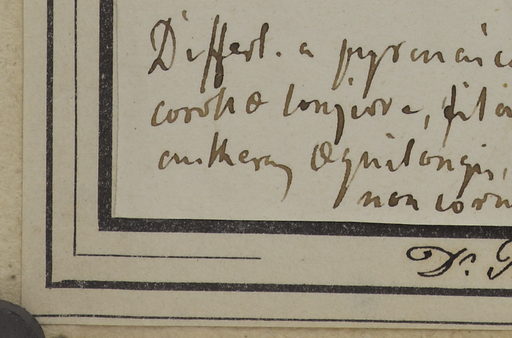 Differt. a pyrenaica
corollæ longiore, fila
anthera æquilongis,
non corn
Dr.